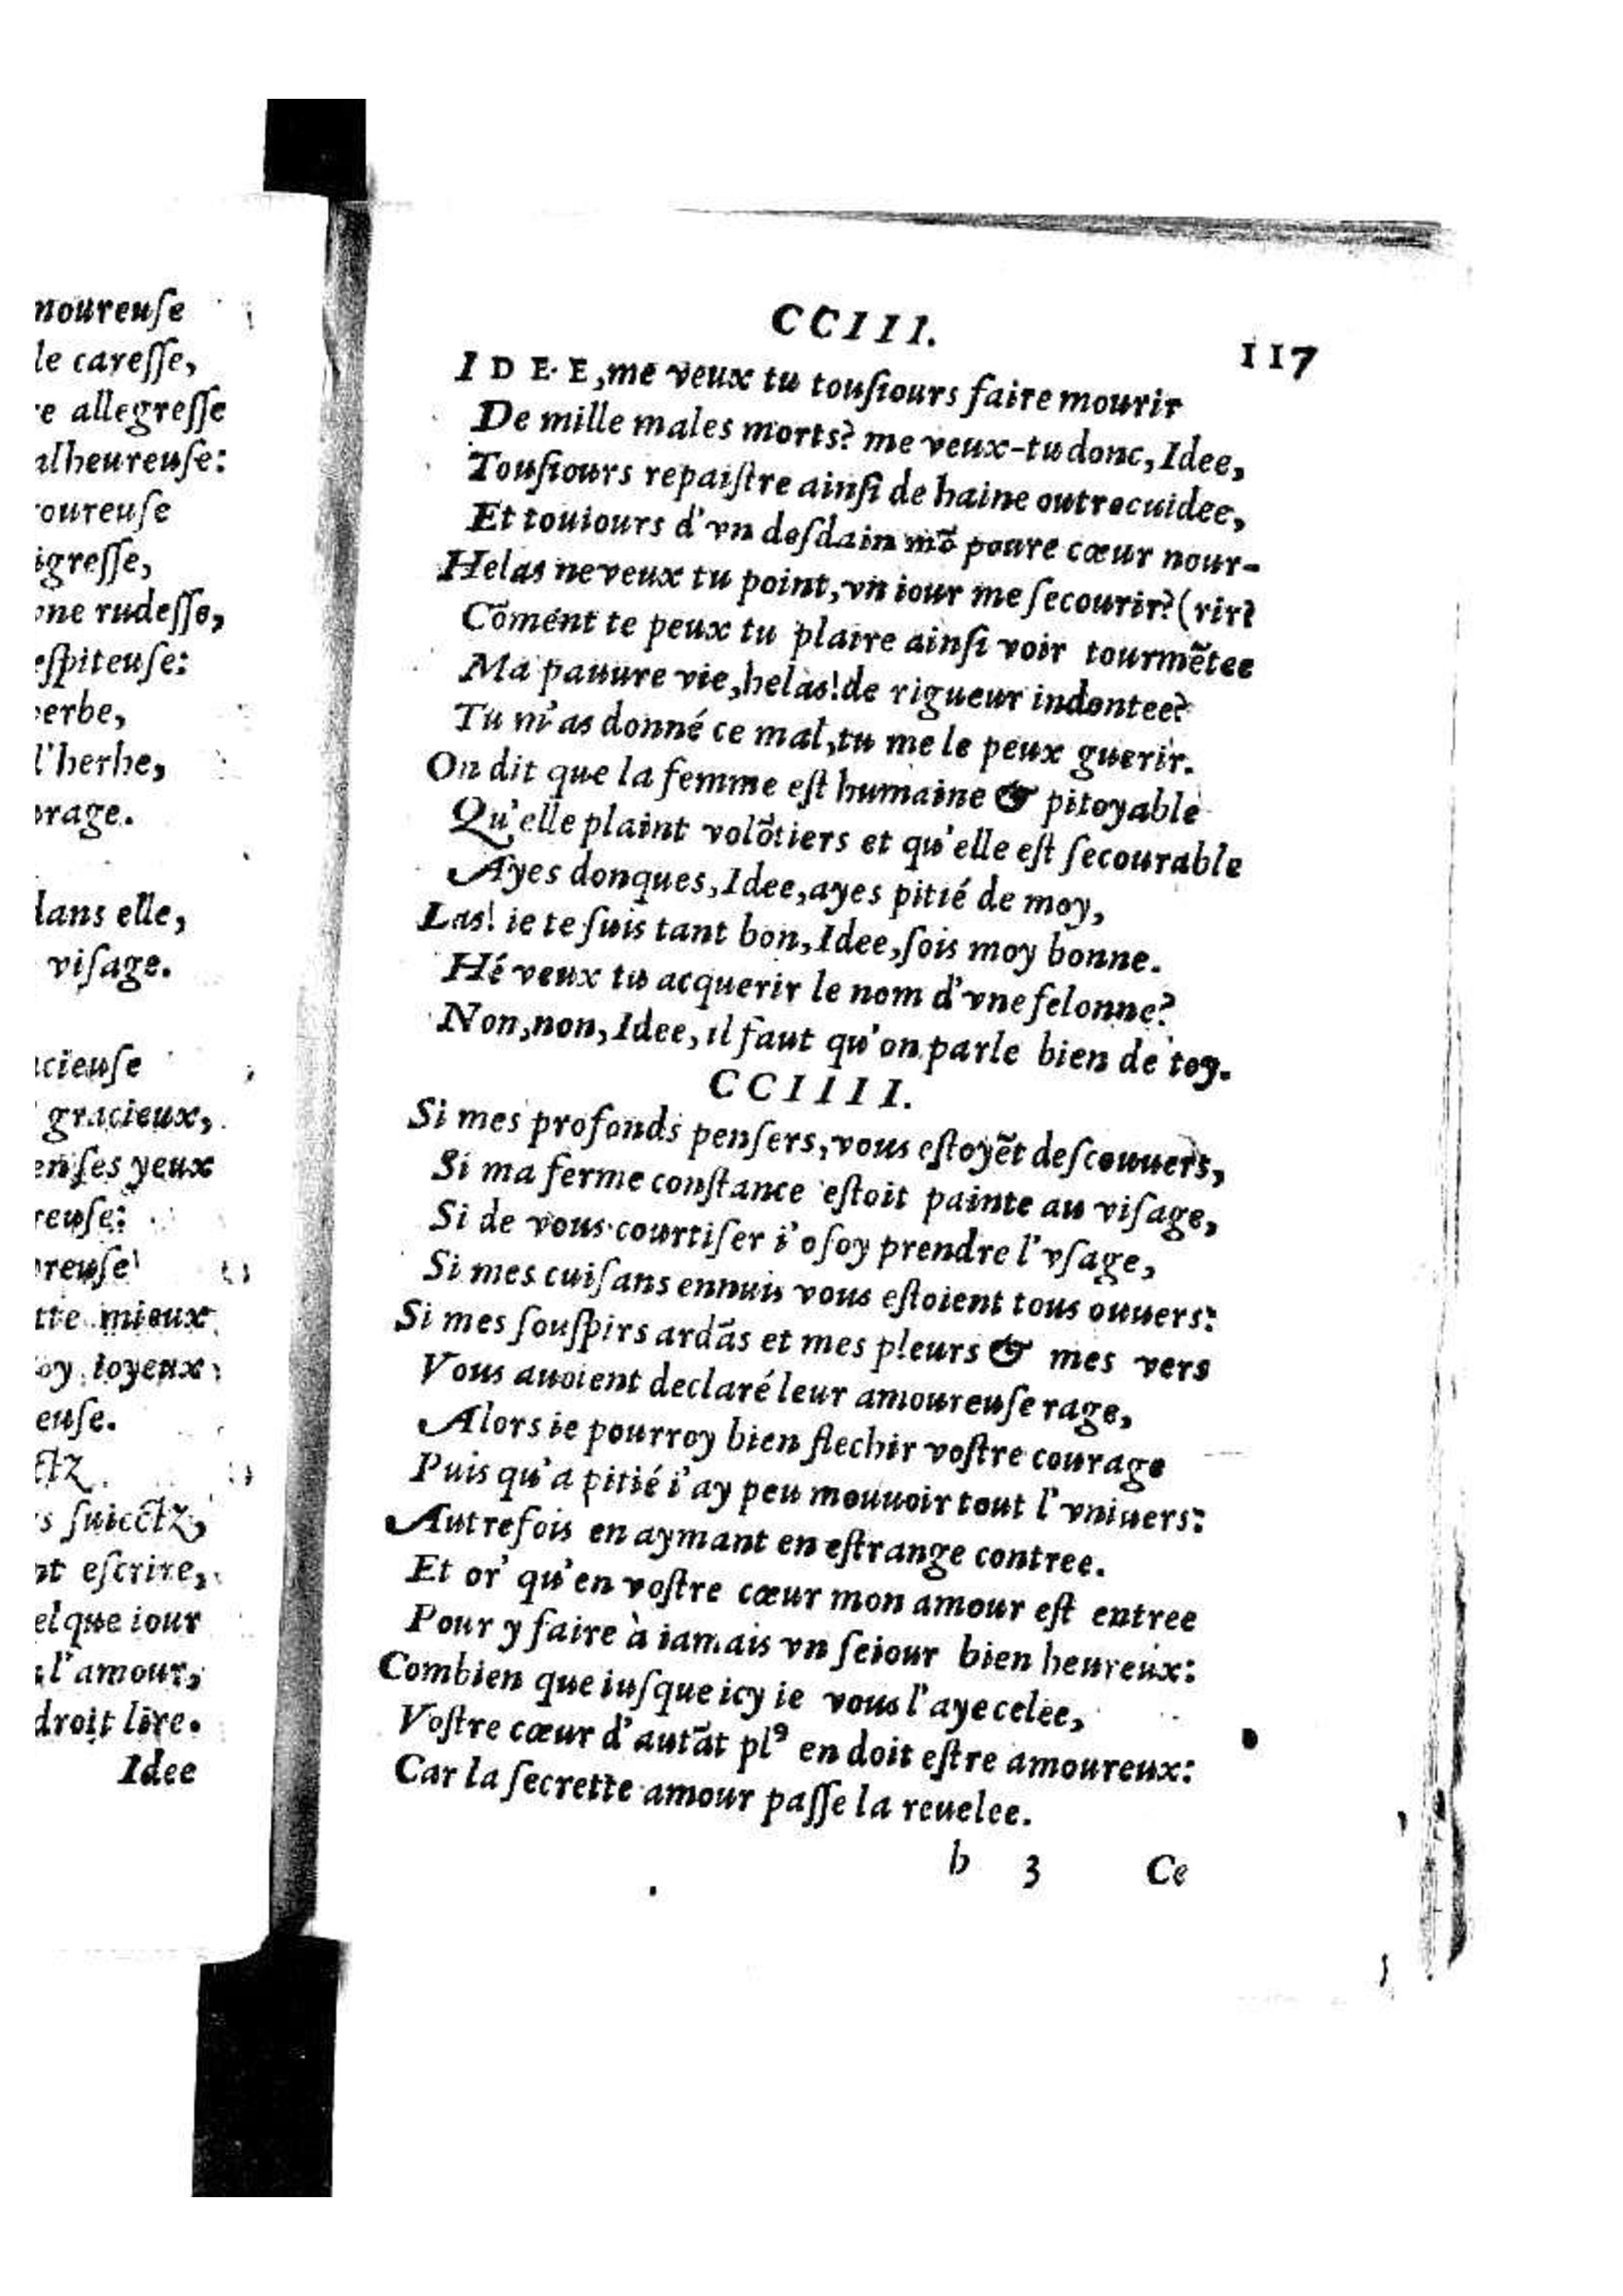 moureuſe
le careſſe,
re allegreſſe
alheureuſe:
oureuſe
igreſſe,
vne rudeſſe,
eſpiteuſe:
erbe,
l'herbe,
orage.
dans elle,
viſage.
cieuſe
gracieux,
enſes yeux
reuſe:
oreuſe
tte mieux
oy ioyeux
euſe.
ctz
s ſuiectz,
nt eſcrire,
elque iour
l'amour,
droit lire.
Idee
CCIII.
117
IDEE, me veux tu touſiours faire mourir
De mille males morts? me veux-tu donc, Idee,
Touſiours repaiſtre ainſi de haine outrecuidee,
Et touiours d'vn deſdain mõ poure cœur nour-
Helas ne veux tu point, vn iour me ſecourir? (rir?
Cõment te peux tu plaire ainſi voir tourmẽtee
Ma pauure vie, helas! de rigueur indontee?
Tu m'as donné ce mal, tu me le peux guerir.
On dit que la femme eſt humaine & pitoyable
Qu'elle plaint volõtiers et qu'elle eſt ſecourable
Ayes donques, Idee, ayes pitié de moy,
Las! ie te ſuis tant bon, Idee, ſois moy bonne.
Hé veux tu acquerir le nom d'vne felonne?
Non, non, Idee, il faut qu'on parle bien de toy.
CCIIII.
Si mes profonds penſers, vous eſtoyẽt deſcouuers,
Si ma ferme conſtance eſtoit painte au viſage,
Si de vous courtiſer i'oſoy prendre l'vſage,
Si mes cuiſans ennuis vous eſtoient tous ouuers:
Si mes ſouſpirs ardãs et mes pleurs & mes vers
Vous auoient declaré leur amoureuſe rage,
Alors ie pourroy bien flechir voſtre courage
Puis qu'a pitié i'ay peu mouuoir tout l'vniuers:
Autrefois en aymant en eſtrange contree.
Et or' qu'en voſtre cœur mon amour eſt entree
Pour y faire à iamais vn ſeiour bien heureux:
Combien que iuſque icy ie vous l'aye celee,
Voſtre cœur d'autãt plꝰ en doit eſtre amoureux:
Car la ſecrette amour paſſe la reuelee.
b 3
Ce